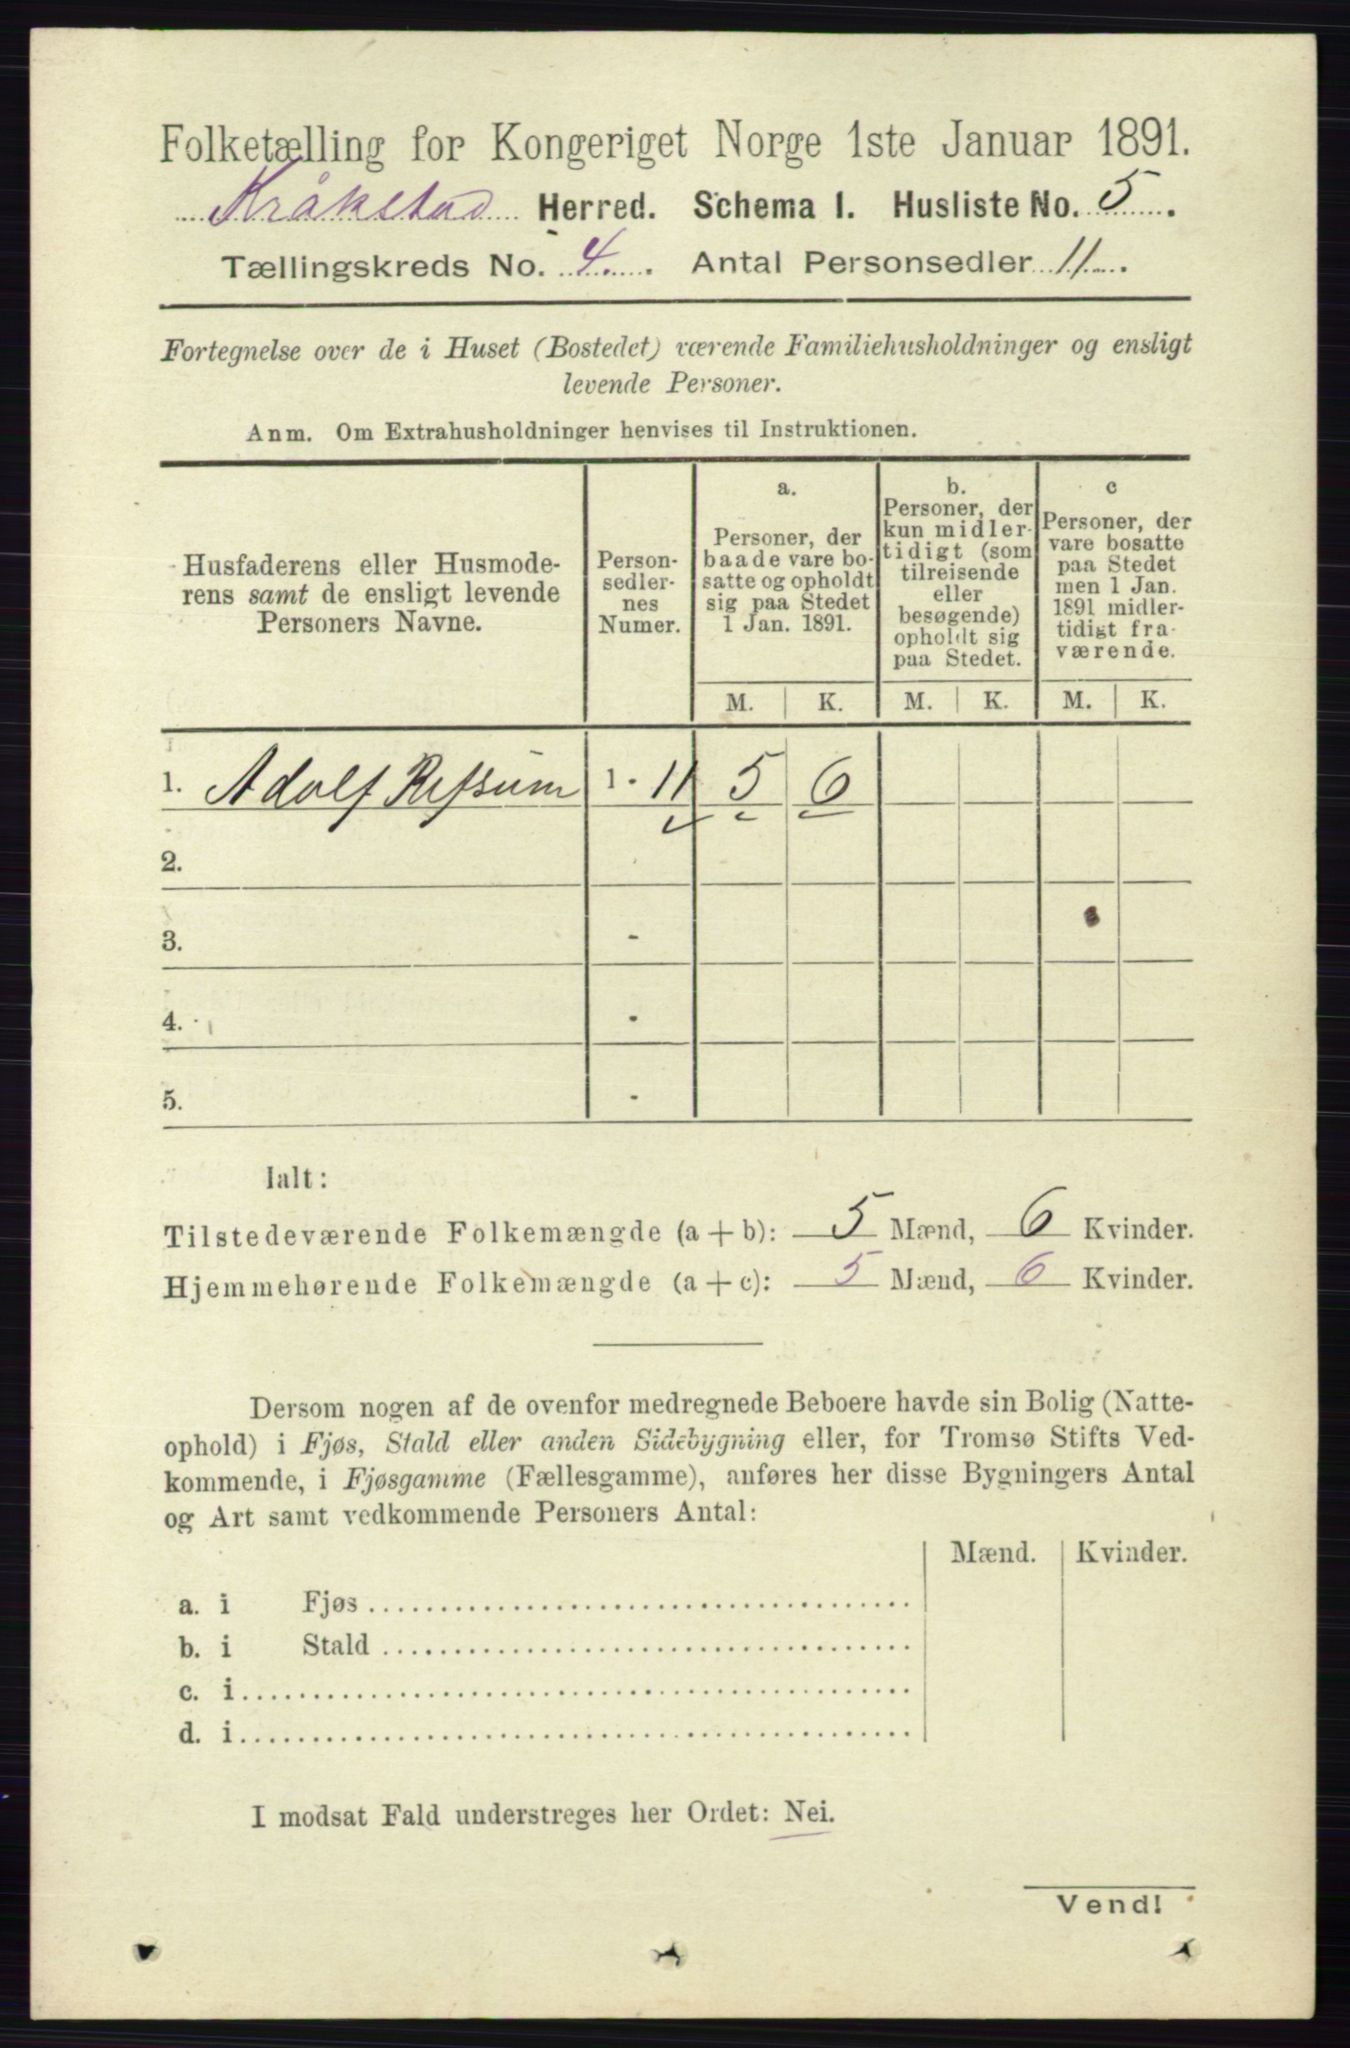 Folketælling for Kongeriget Norge 1ste Januar 1891.
Kråkstad Herred. Schema 1. Husliste No. 5.
Tællingskreds No. 4. Antal Personsedler 11.
Fortegnelse over de i Huset (Bostedet) værende Familiehusholdninger og ensligt
levende Personer.
Anm. Om Extrahusholdninger henvises til Instruktionen.
Husfaderens eller Husmode-
rens samt de ensligt levende
Personers Navne.
Person-
sedler-
nes
Numer.
a.
Personer, der
baade vare bo-
satte og opholdt
sig paa Stedet
1 Jan. 1891.
b.
Personer, der
kun midler-
tidigt (som
tilreisende
eller
besøgende)
opholdt sig
paa Stedet.
c
Personer, der
vare bosatte
paa Stedet
men 1 Jan.
1891 midler-
tidigt fra-
værende.
M. K. M. K. M. K.
1. Adolf Refsum 1 - 11 5 6
2.
3. -
4. -
5. -
Ialt:
Tilstedeværende Folkemængde (a + b): 5 Mænd, 6 Kvinder.
Hjemmehørende Folkemængde (a + c): 5 Mænd, 6 Kvinder.
Dersom nogen af de ovenfor medregnede Beboere havde sin Bolig (Natte-
ophold) i Fjøs, Stald eller anden Sidebygning eller, for Tromsø Stifts Ved-
kommende, i Fjøsgamme (Fællesgamme), anføres her disse Bygningers Antal
og Art samt vedkommende Personers Antal:
Mænd. Kvinder.
a. i Fjøs
b. i Stald
c. i
d. i
I modsat Fald understreges her Ordet: Nei.
Vend!